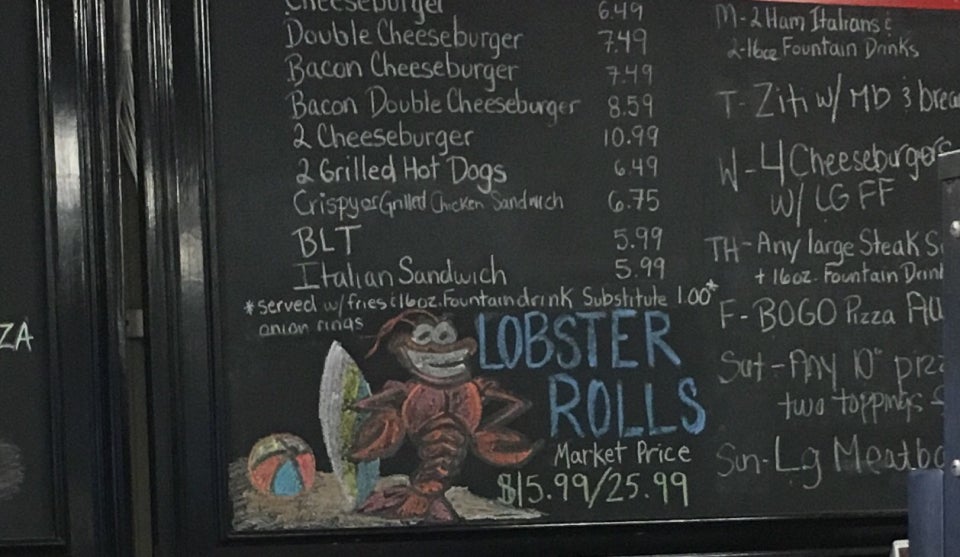 Cheeseburger 6.49
Double Cheeseburger 7.49
Bacon Cheeseburger 7.49
Bacon Double Cheeseburger 8.59
2 Cheeseburger 10.99
2 Grilled Hot Dogs 6.49
Crispy or Grilled Chicken Sandwich 6.75
BLT 5.99
Italian Sandwich 5.99
*served w/ fries & 16oz. Fountain drink Substitute 1.00*
onion rings
LOBSTER
ROLLS
Market Price
$15.99/25.99
M-2 Ham Italians &
2-16oz Fountain Drinks
T-Ziti w/ MB & brea
W-4 Cheeseburgers
w/ LG FF
TH-Any large Steak S
+ 16oz. Fountain Drin
F-BOGO Pizza All
Sat-Any 10" pizz
two toppings
Sun-Lg Meatba
ZA